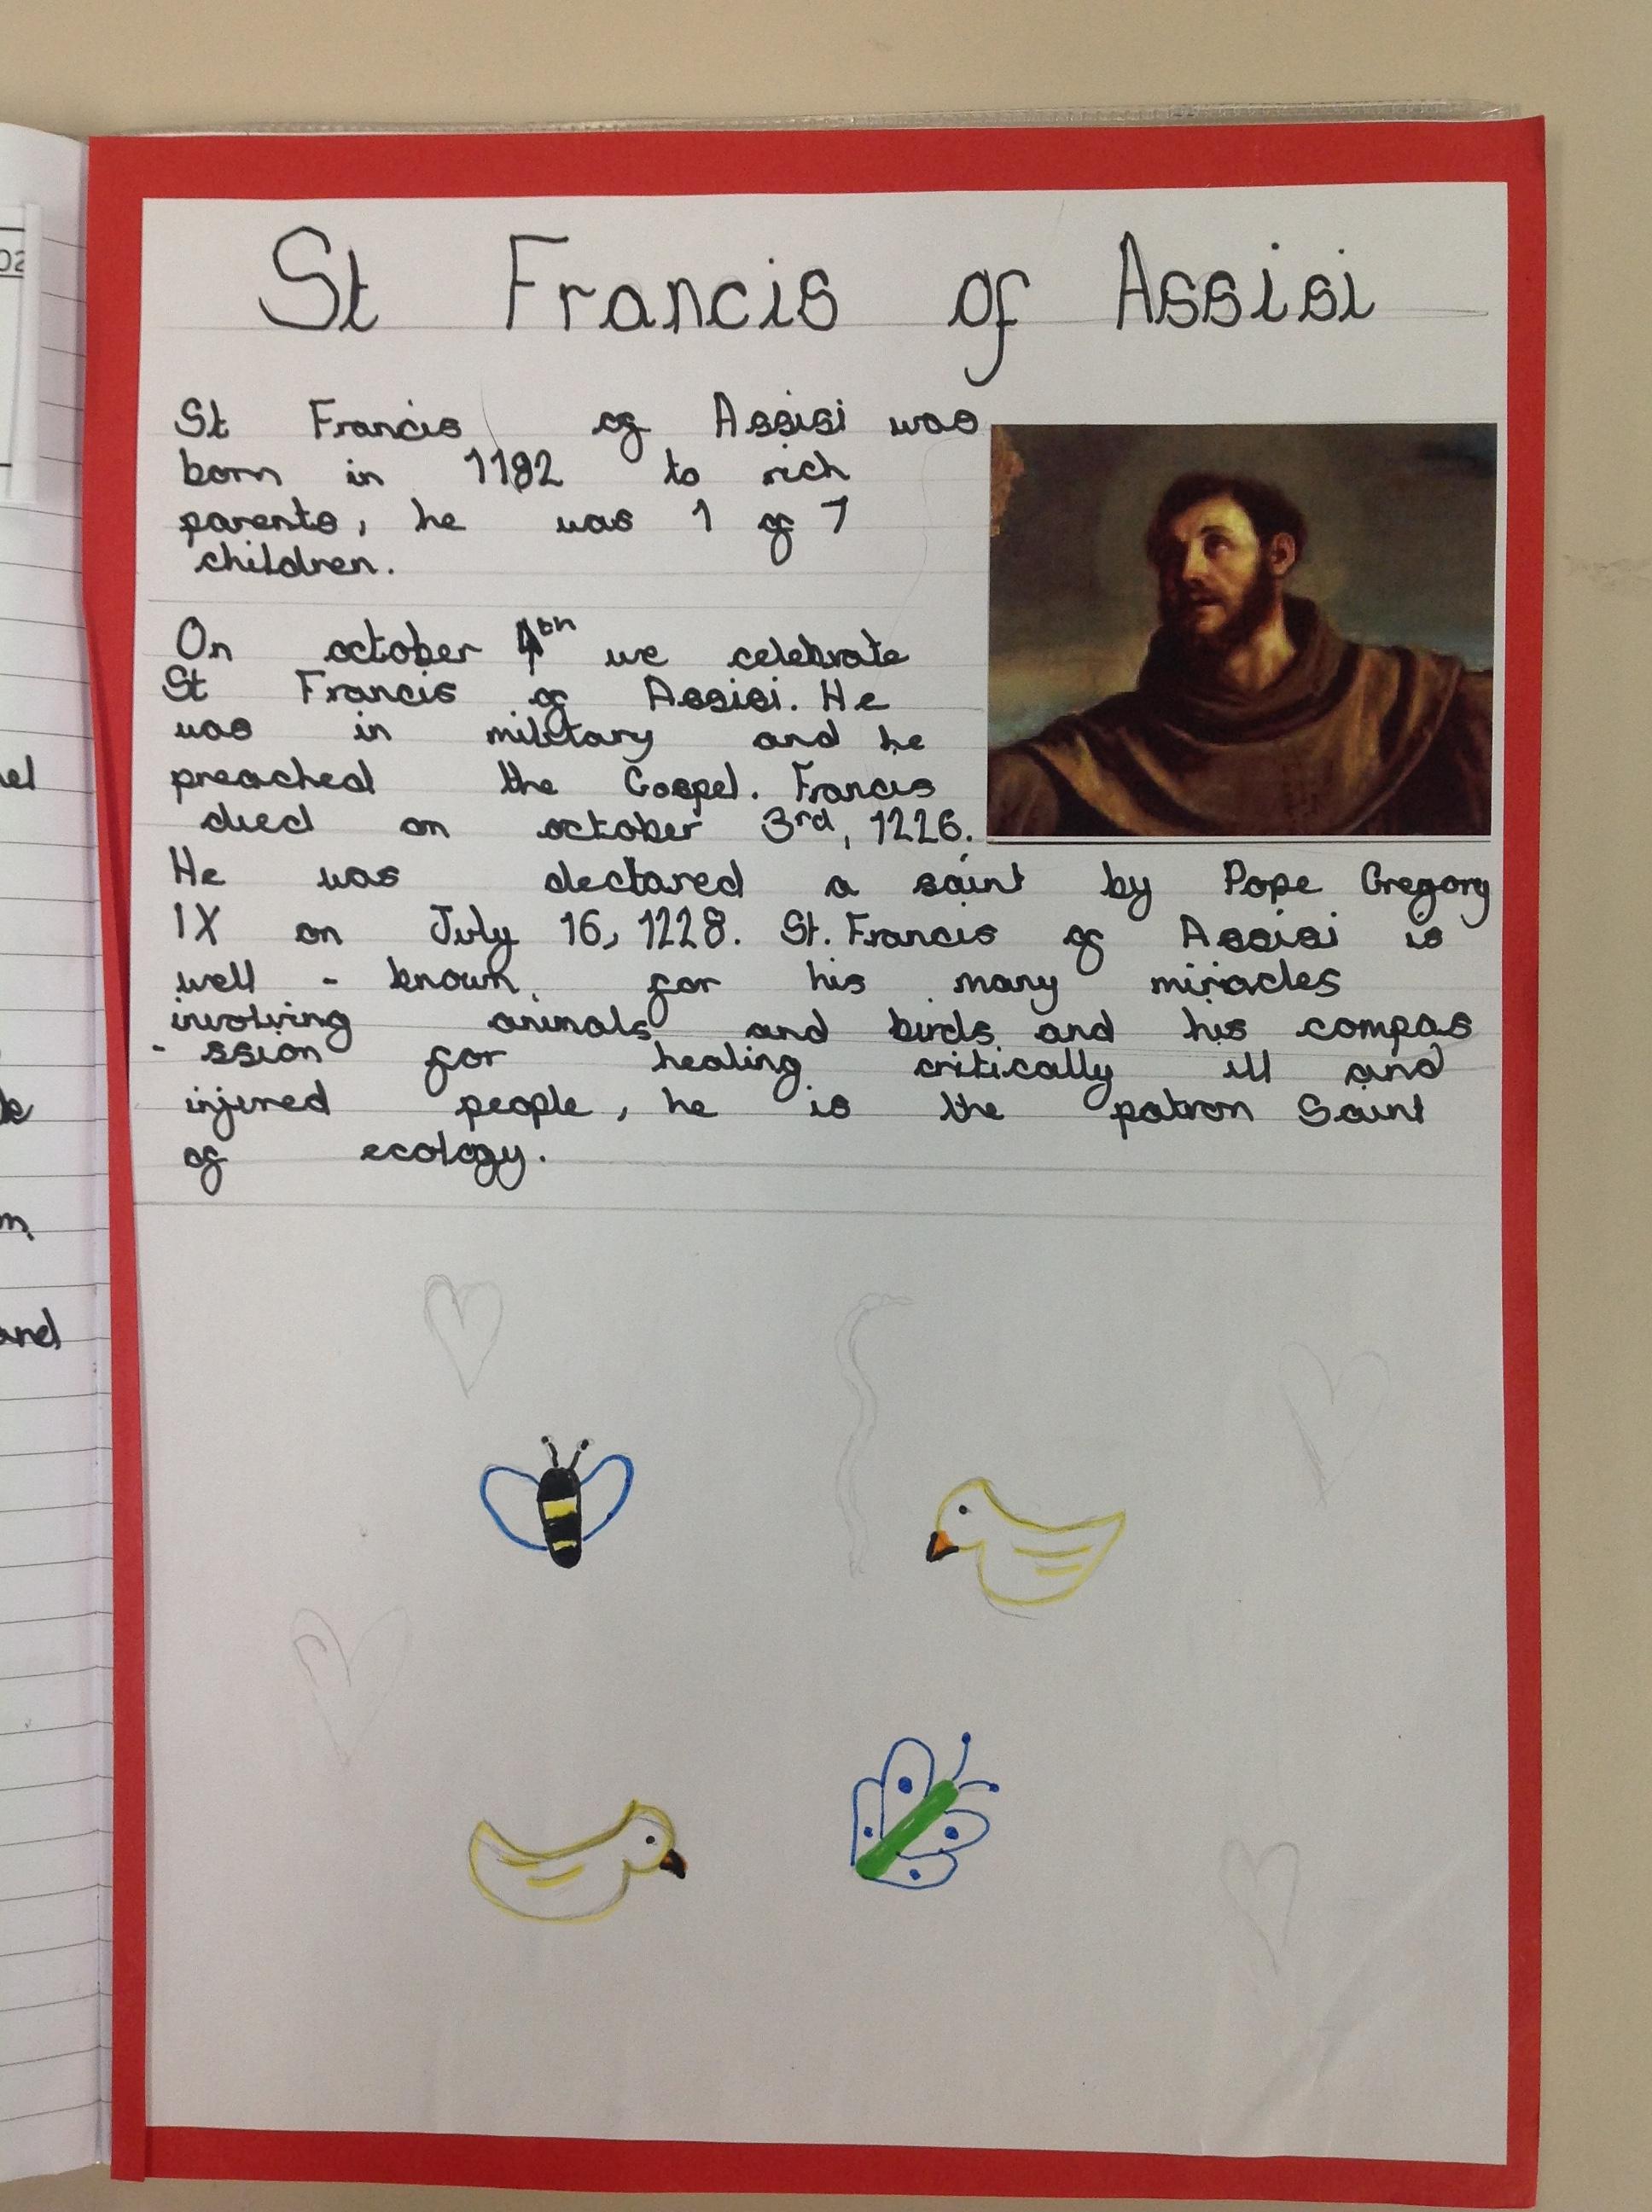 St Francis of Assisi
St Francis of Assisi was
born in 1182 to rich
parents, he was 1 of 7
children.
On october 4th we celebrate
St Francis of Assisi. He
was in military and he
preached the Gospel. Francis
died on october 3rd, 1226.
He was declared a saint by Pope Gregory
IX on July 16, 1228. St. Francis of Assisi is
well - known for his many miracles
involving animals and birds and his compas
- ssion for healing critically ill and
injured people, he is the patron Saint
of ecology.
and